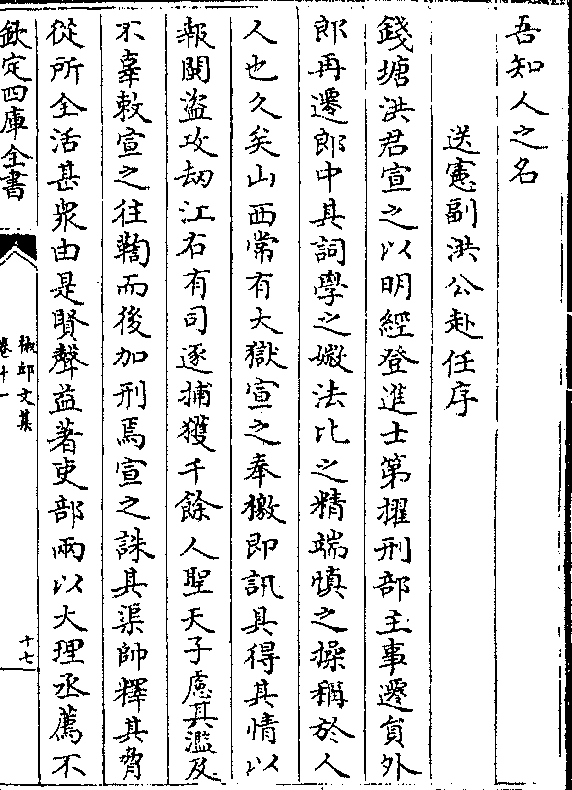 吾知人之名
送憲副洪公赴任序
錢塘洪君宣之以明經登進士第擢刑部主事遷員外
郎再遷郎中其詞學之媺法比之精端慎之操稱於人
人也久矣山西常有大獄宣之奉檄即訊具得其情以
報閩盜攻刼江右有司逐捕獲千餘人聖天子慮其濫及
不辜敕宣之往鞫而後加刑焉宣之誅其渠帥釋其脅
從所全活甚衆由是賢聲益著吏部兩以大理丞薦不
欽定四庫全書
椒邱文集
卷十一
十七